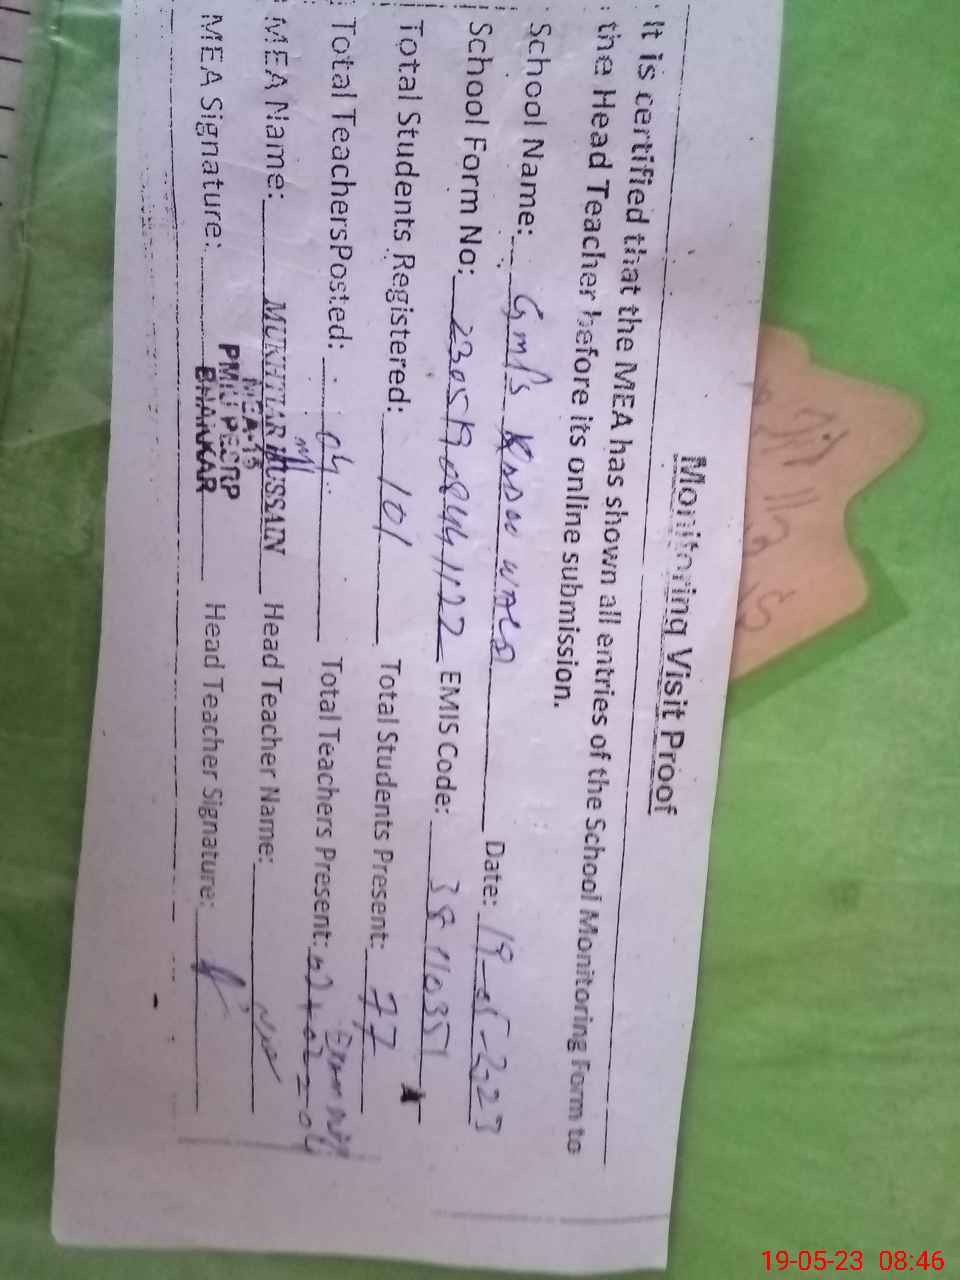 Monitoring Visit Proof
It is certified that the MEA has shown all entries of the School Monitoring Form to
the Head Teacher before its online submission.
School Name: GMPS Date: 19-05-2023
School Form No: 23051908441122 EMIS Code: 38110351
Total Students Registered: 101 Total Students Present: 77
Total Teachers Posted: 04 Total Teachers Present: 02+02=04
MEA Name: MUKHTIAR HUSSAIN Head Teacher Name:
MEA-15
PMIU PESRP
BHAKKAR
MEA Signature: Head Teacher Signature:
19-05-23 08:46